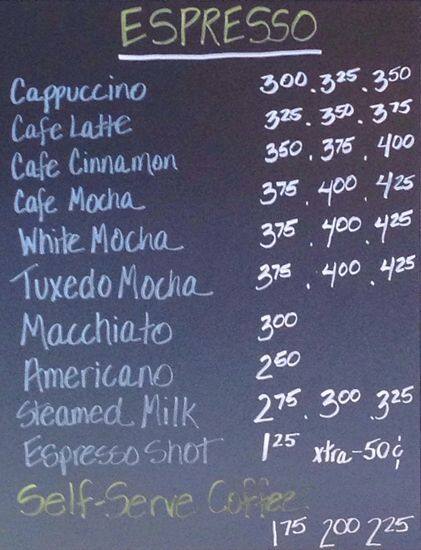 ESPRESSO
Cappuccino 300 . 325 . 350
Cafe Latte 325 . 350 . 375
Cafe Cinnamon 350 . 375 . 400
Cafe Mocha 375 . 400 . 425
White Mocha 375 . 400 . 425
Tuxedo Mocha 375 . 400 . 425
Macchiato 300
Americano 250
Steamed Milk 275 . 300 . 325
Espresso Shot 125 xtra-50¢
Self-Serve Coffee
175 200 225